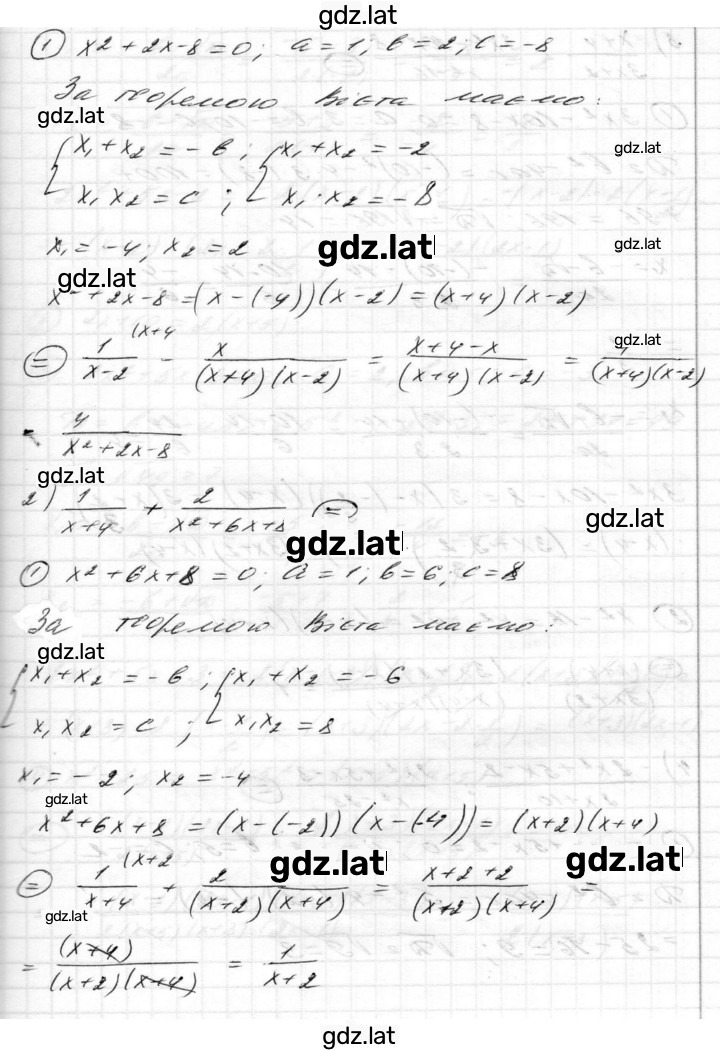 gdz.lat
① x² + 2x - 8 = 0; a = 1; b = 2; c = -8
За теоремою Вієта маємо:
gdz.lat
{ x₁ + x₂ = -b; { x₁ + x₂ = -2
gdz.lat
x₁ x₂ = c; x₁ · x₂ = -8
x₁ = -4; x₂ = 2
gdz.lat
gdz.lat
gdz.lat
x² + 2x - 8 = (x - (-4))(x - 2) = (x+4)(x-2)
⊜ 1/(x-2) (x+4 - x/((x+4)(x-2)) = (x+4-x)/((x+4)(x-2)) = 4/((x+4)(x-2))
gdz.lat
= 4/(x²+2x-8)
gdz.lat
2) 1/(x+4) + 2/(x²+6x+8) ⊜
gdz.lat
gdz.lat
① x² + 6x + 8 = 0; a = 1; b = 6; c = 8
За теоремою Вієта маємо:
gdz.lat
{ x₁ + x₂ = -b; { x₁ + x₂ = -6
x₁ x₂ = c; x₁ x₂ = 8
x₁ = -2; x₂ = -4
gdz.lat
x² + 6x + 8 = (x - (-2))(x - (-4)) = (x+2)(x+4)
gdz.lat
gdz.lat
⊜ 1/(x+4) (x+2 + 2/((x+2)(x+4)) = (x+2+2)/((x+2)(x+4)) =
gdz.lat
= (x+4)/((x+2)(x+4)) = 1/(x+2)
gdz.lat